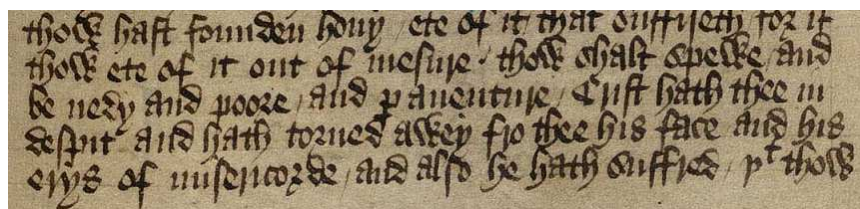 thow hast founden hony / ete of it that suffiseth for if
thow ete of it out of mesure · thow shalt spewe / and
be nedy and poore / and p auenture / Crist hath thee in
despit and hath torned awey fro thee his face and his
erys of misericorde / and also he hath suffred / þt thow